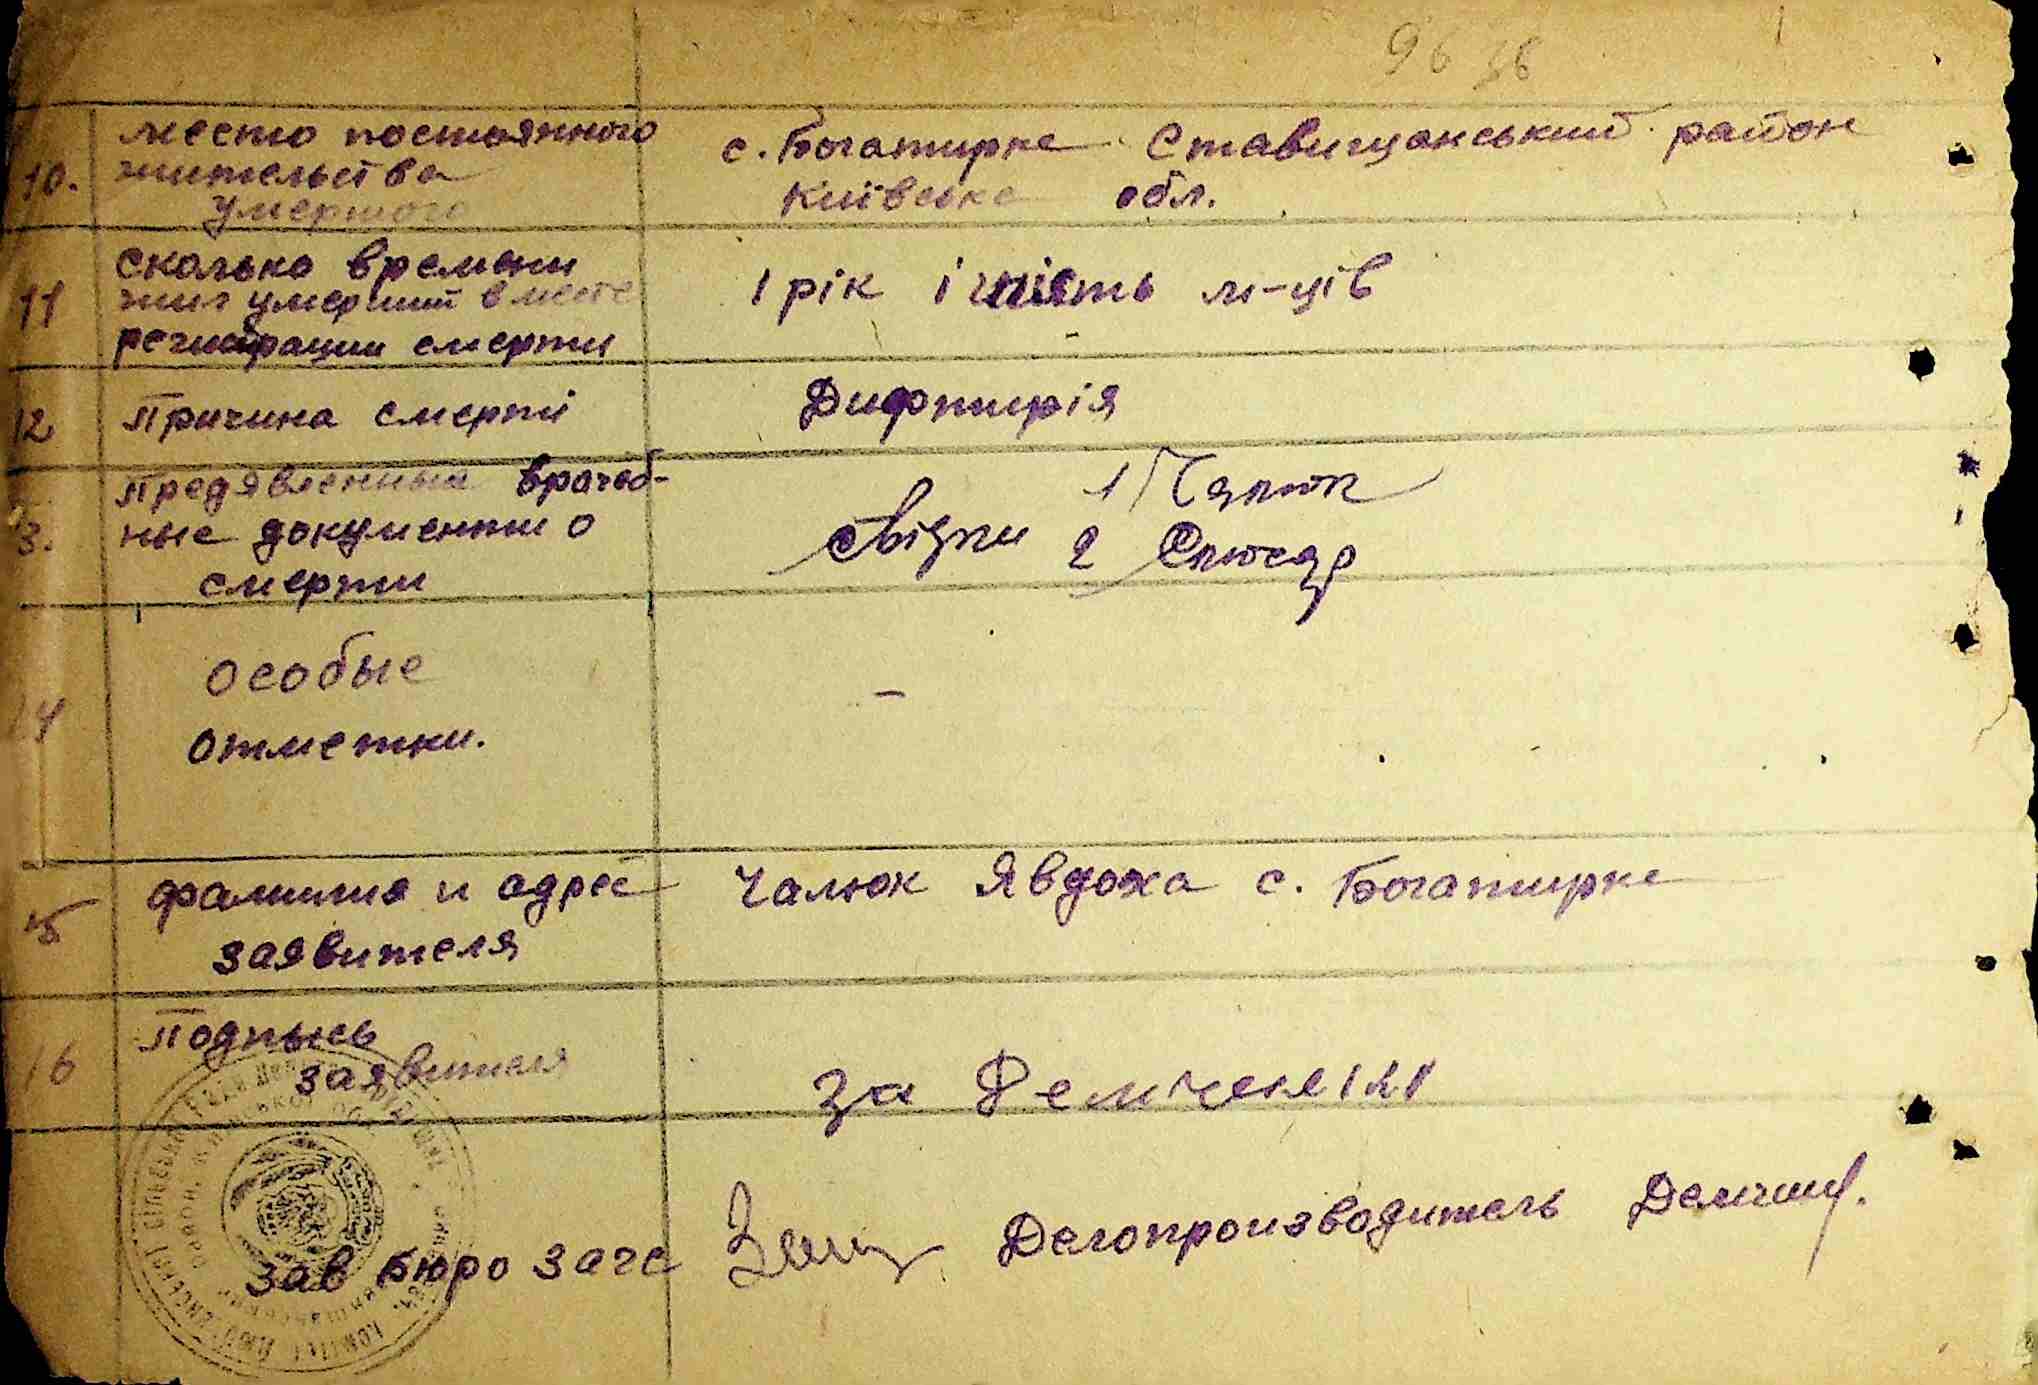 96
10. место постоянного
жительства
умершого
с. Богатирка Ставищанський район
Київська обл.
11 сколько времени
жил умерший в месте
регистрации смерти
1 рік і м-ців
12 Причина смерті
Дифтирія
3. Предявленные врачеб-
ные документи о
смерти
свідки 1) Чалюк
2 Слюсар
14 особые
отметки.
-
15 фамилия и адрес
заявителя
Чалюк Явдоха с. Богатирка
16 Подпысь
заявителя
за
зав бюро загс Делопроизводитель